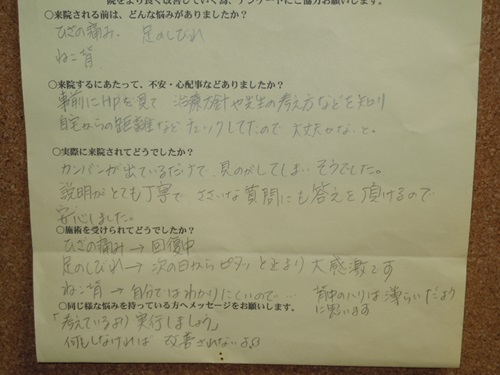 院をより良く改善していく為、アンケートにご協力お願いします。
○来院される前は、どんな悩みがありましたか?
ひざの痛み、 足のしびれ
ねこ背
○来院するにあたって、不安・心配事などありましたか?
事前にHPを見て 治療方針や先生の考え方などを知り
自宅からの距離などチェックしてたので 大丈夫かな。と。
○実際に来院されてどうでしたか?
カンバンが出ているだけで 見のがしてしま…そうでした。
説明がとても丁寧で ささいな質問にも答えを頂けるので
安心しました。
○施術を受けられてどうでしたか?
ひざの痛み→回復中
足のしびれ→次の日からピタッと止まり 大感激です
ねこ背→自分ではわかりにくいので… 背中のハリは薄らいだよう
に思います
○同じ様な悩みを持っている方へメッセージをお願いします。
「考えているより 実行しましょう」
何もしなければ 改善されないよ